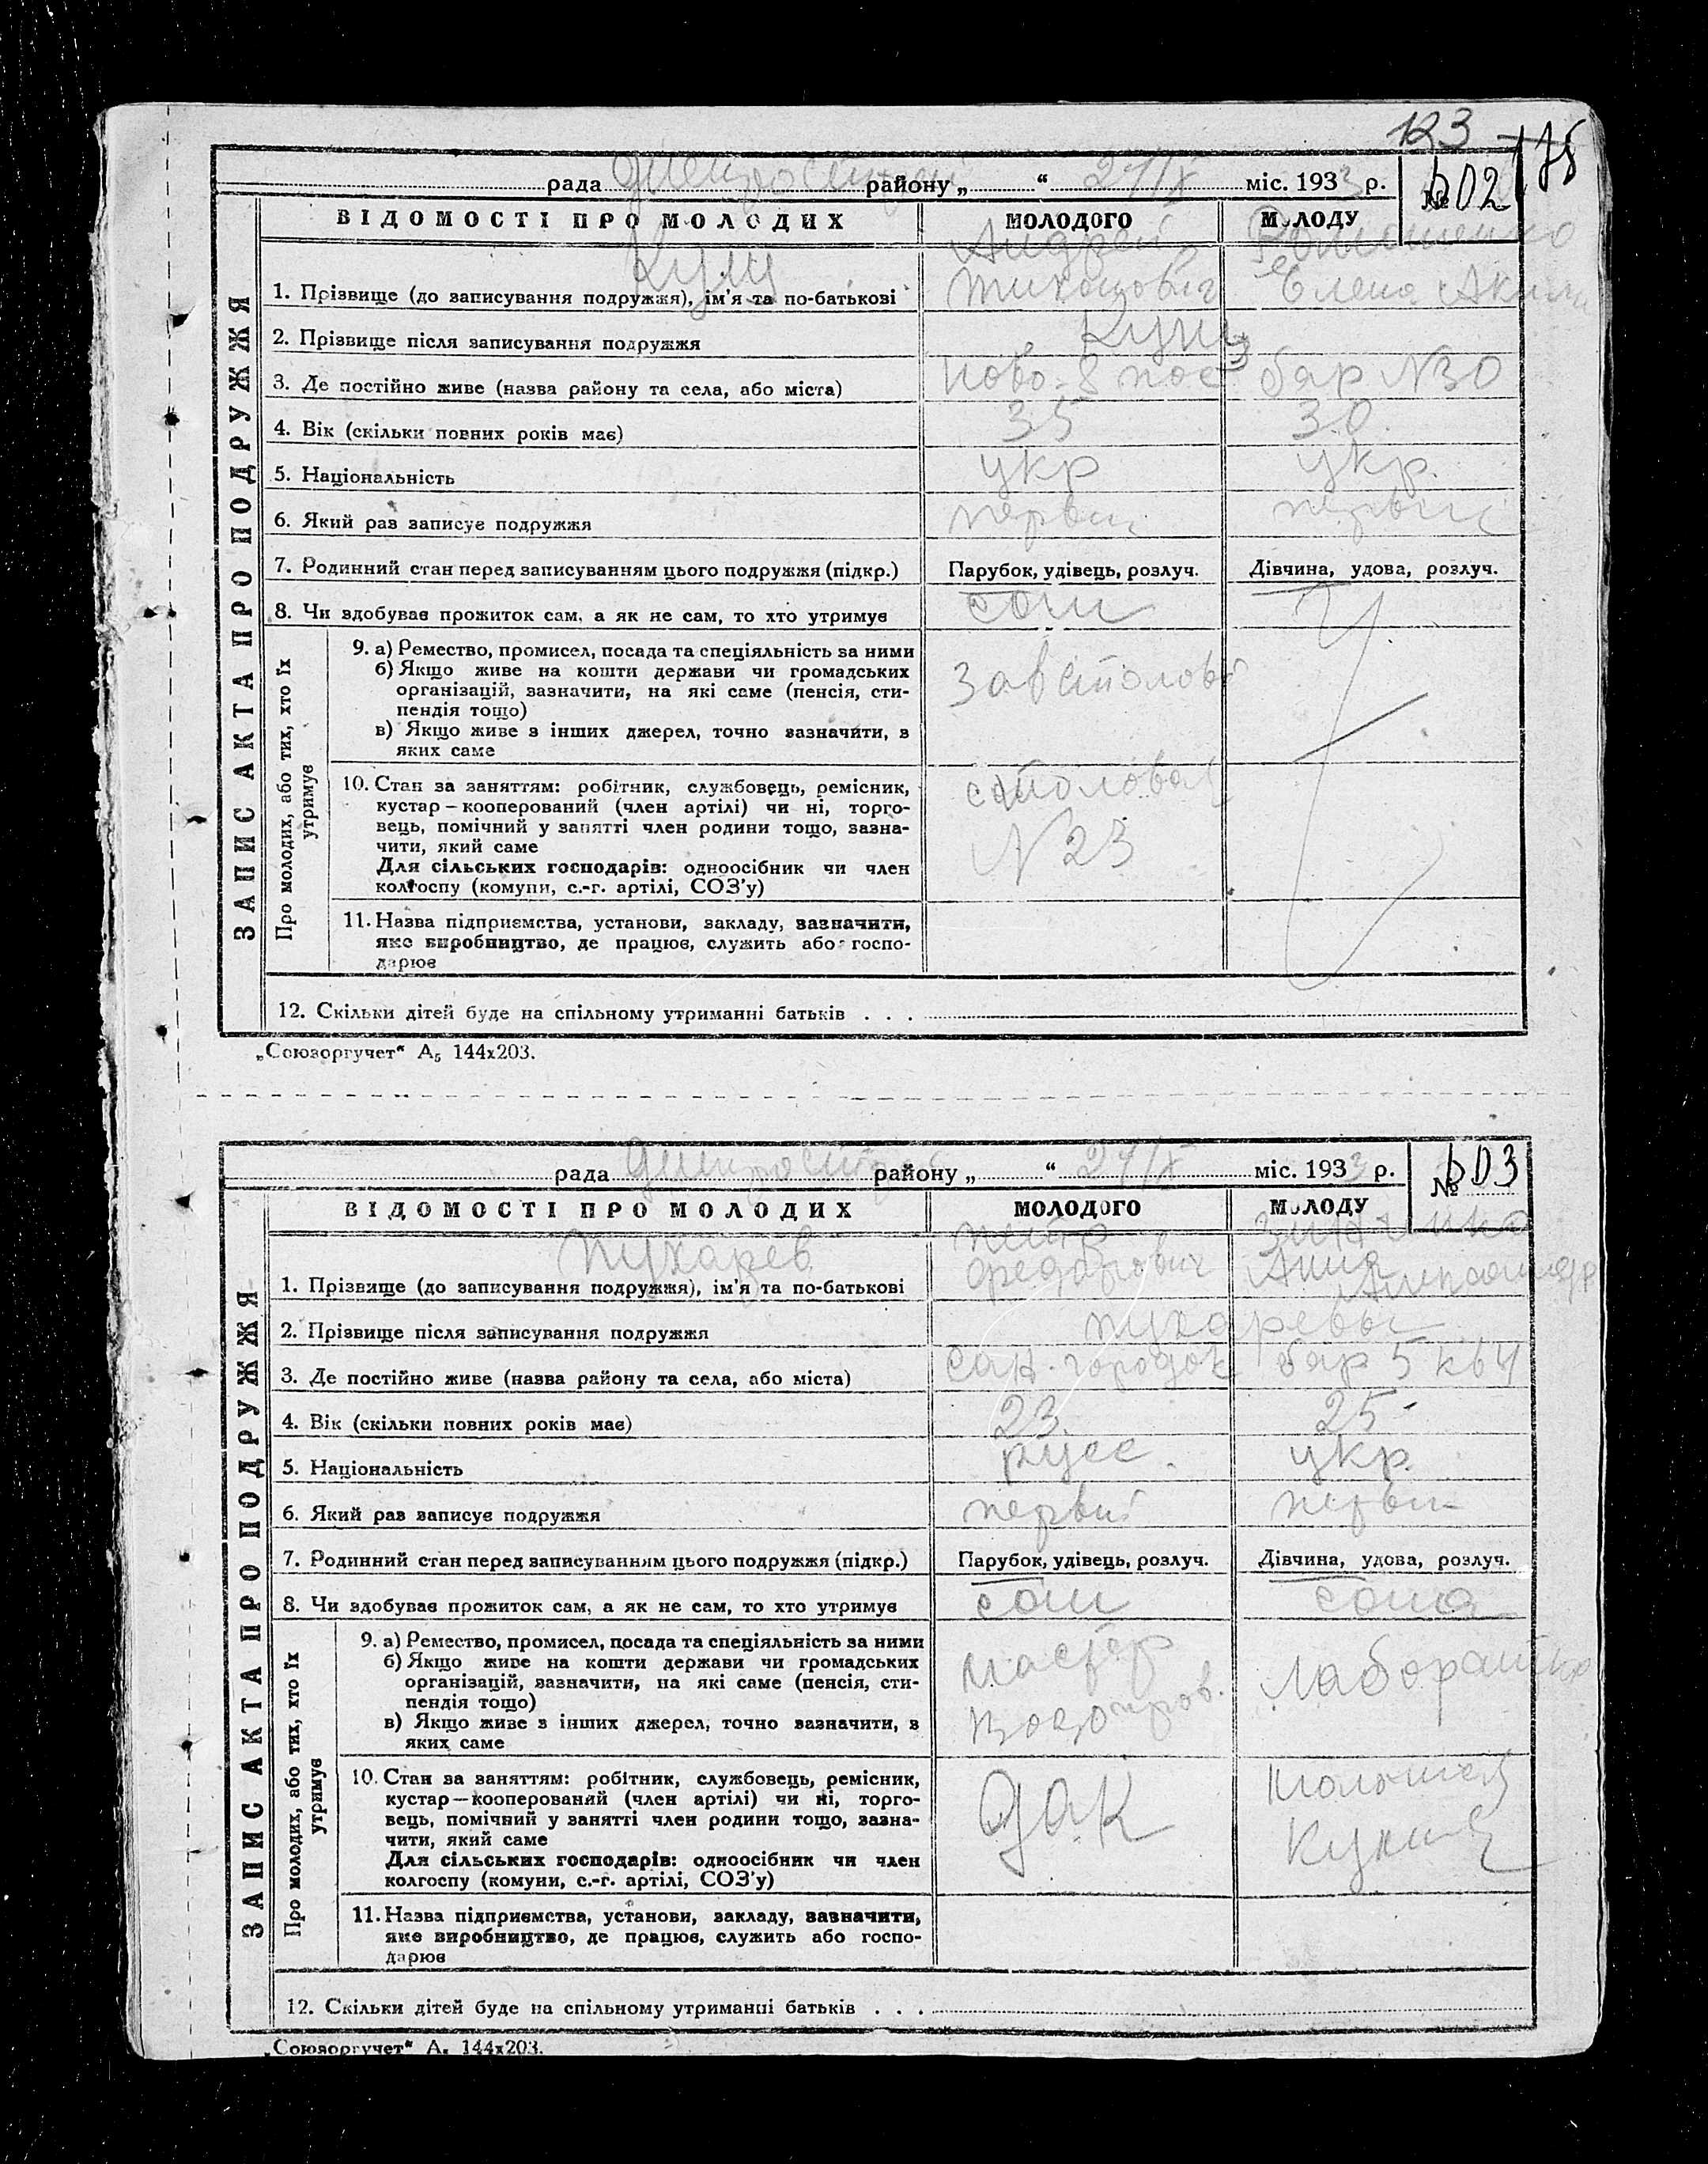 123
175
рада Днепрострой району „ “ 27/IX міс. 1933 р.
№ 602
ВІДОМОСТІ ПРО МОЛОДИХ
МОЛОДОГО
МОЛОДУ
ЗАПИС АКТА ПРО ПОДРУЖЖЯ
1. Прізвище (до записування подружжя), ім'я та по-батькові
Куц Андрей
Тихонович
Елена Аким
2. Прізвище після записування подружжя
3. Де постійно живе (назва району та села, або міста)
ново-8 пос
бар №30
4. Вік (скільки повних років має)
35
30
5. Національність
укр
укр.
6. Який раз записує подружжя
первый
первый
7. Родинний стан перед записуванням цього подружжя (підкр.)
Парубок, удівець, розлуч.
Дівчина, удова, розлуч.
8. Чи здобуває прожиток сам, а як не сам, то хто утримує
сам
Про молодих, або тих, хто їх утримує
9. а) Ремество, промисел, посада та спеціяльність за ними
б) Якщо живе на кошти держави чи громадських
організацій, зазначити, на які саме (пенсія, сти-
пендія тощо)
в) Якщо живе з інших джерел, точно зазначити, з
яких саме
Зав столовой
10. Стан за заняттям: робітник, службовець, ремісник,
кустар – кооперований (член артілі) чи ні, торго-
вець, помічний у занятті член родини тощо, зазна-
чити, який саме
Для сільських господарів: одноосібник чи член
колгоспу (комуни, с.-г. артілі, СОЗ'у)
столовая
№ 23
11. Назва підприємства, установи, закладу, зазначити,
яке виробництво, де працює, служить або госпо-
дарює
12. Скільки дітей буде на спільному утриманні батьків . . .
„Союзоргучет“ А5 144х203.
рада Днепрострой району „ “ 27/IX міс. 1933 р.
№ 603
ВІДОМОСТІ ПРО МОЛОДИХ
МОЛОДОГО
МОЛОДУ
ЗАПИС АКТА ПРО ПОДРУЖЖЯ
1. Прізвище (до записування подружжя), ім'я та по-батькові
Пухарев Петр
Федорович
Анна
2. Прізвище після записування подружжя
Пухаревы
3. Де постійно живе (назва району та села, або міста)
Сан. городок
бар 5 кв 4
4. Вік (скільки повних років має)
23.
25
5. Національність
русс.
укр.
6. Який раз записує подружжя
первый
первый
7. Родинний стан перед записуванням цього подружжя (підкр.)
Парубок, удівець, розлуч.
Дівчина, удова, розлуч.
8. Чи здобуває прожиток сам, а як не сам, то хто утримує
сам
сама
Про молодих, або тих, хто їх утримує
9. а) Ремество, промисел, посада та спеціяльність за ними
б) Якщо живе на кошти держави чи громадських
організацій, зазначити, на які саме (пенсія, сти-
пендія тощо)
в) Якщо живе з інших джерел, точно зазначити, з
яких саме
мастер
водопров.
10. Стан за заняттям: робітник, службовець, ремісник,
кустар – кооперований (член артілі) чи ні, торго-
вець, помічний у занятті член родини тощо, зазна-
чити, який саме
Для сільських господарів: одноосібник чи член
колгоспу (комуни, с.-г. артілі, СОЗ'у)
ДАК
кухня
11. Назва підприємства, установи, закладу, зазначити,
яке виробництво, де працює, служить або госпо-
дарює
12. Скільки дітей буде на спільному утриманні батьків . . .
„Союзоргучет“ А5 144х203.